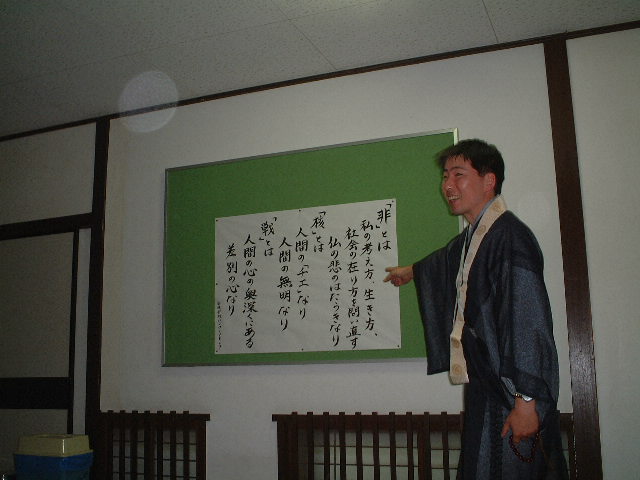 「非」とは
私の考え方、生き方、
社会の在り方を問い直す
仏の悲のはたらきなり
「核」とは
人間の「チエ」なり
人間の無明なり
「戦」とは
人間の心の奥深くにある
差別の心なり